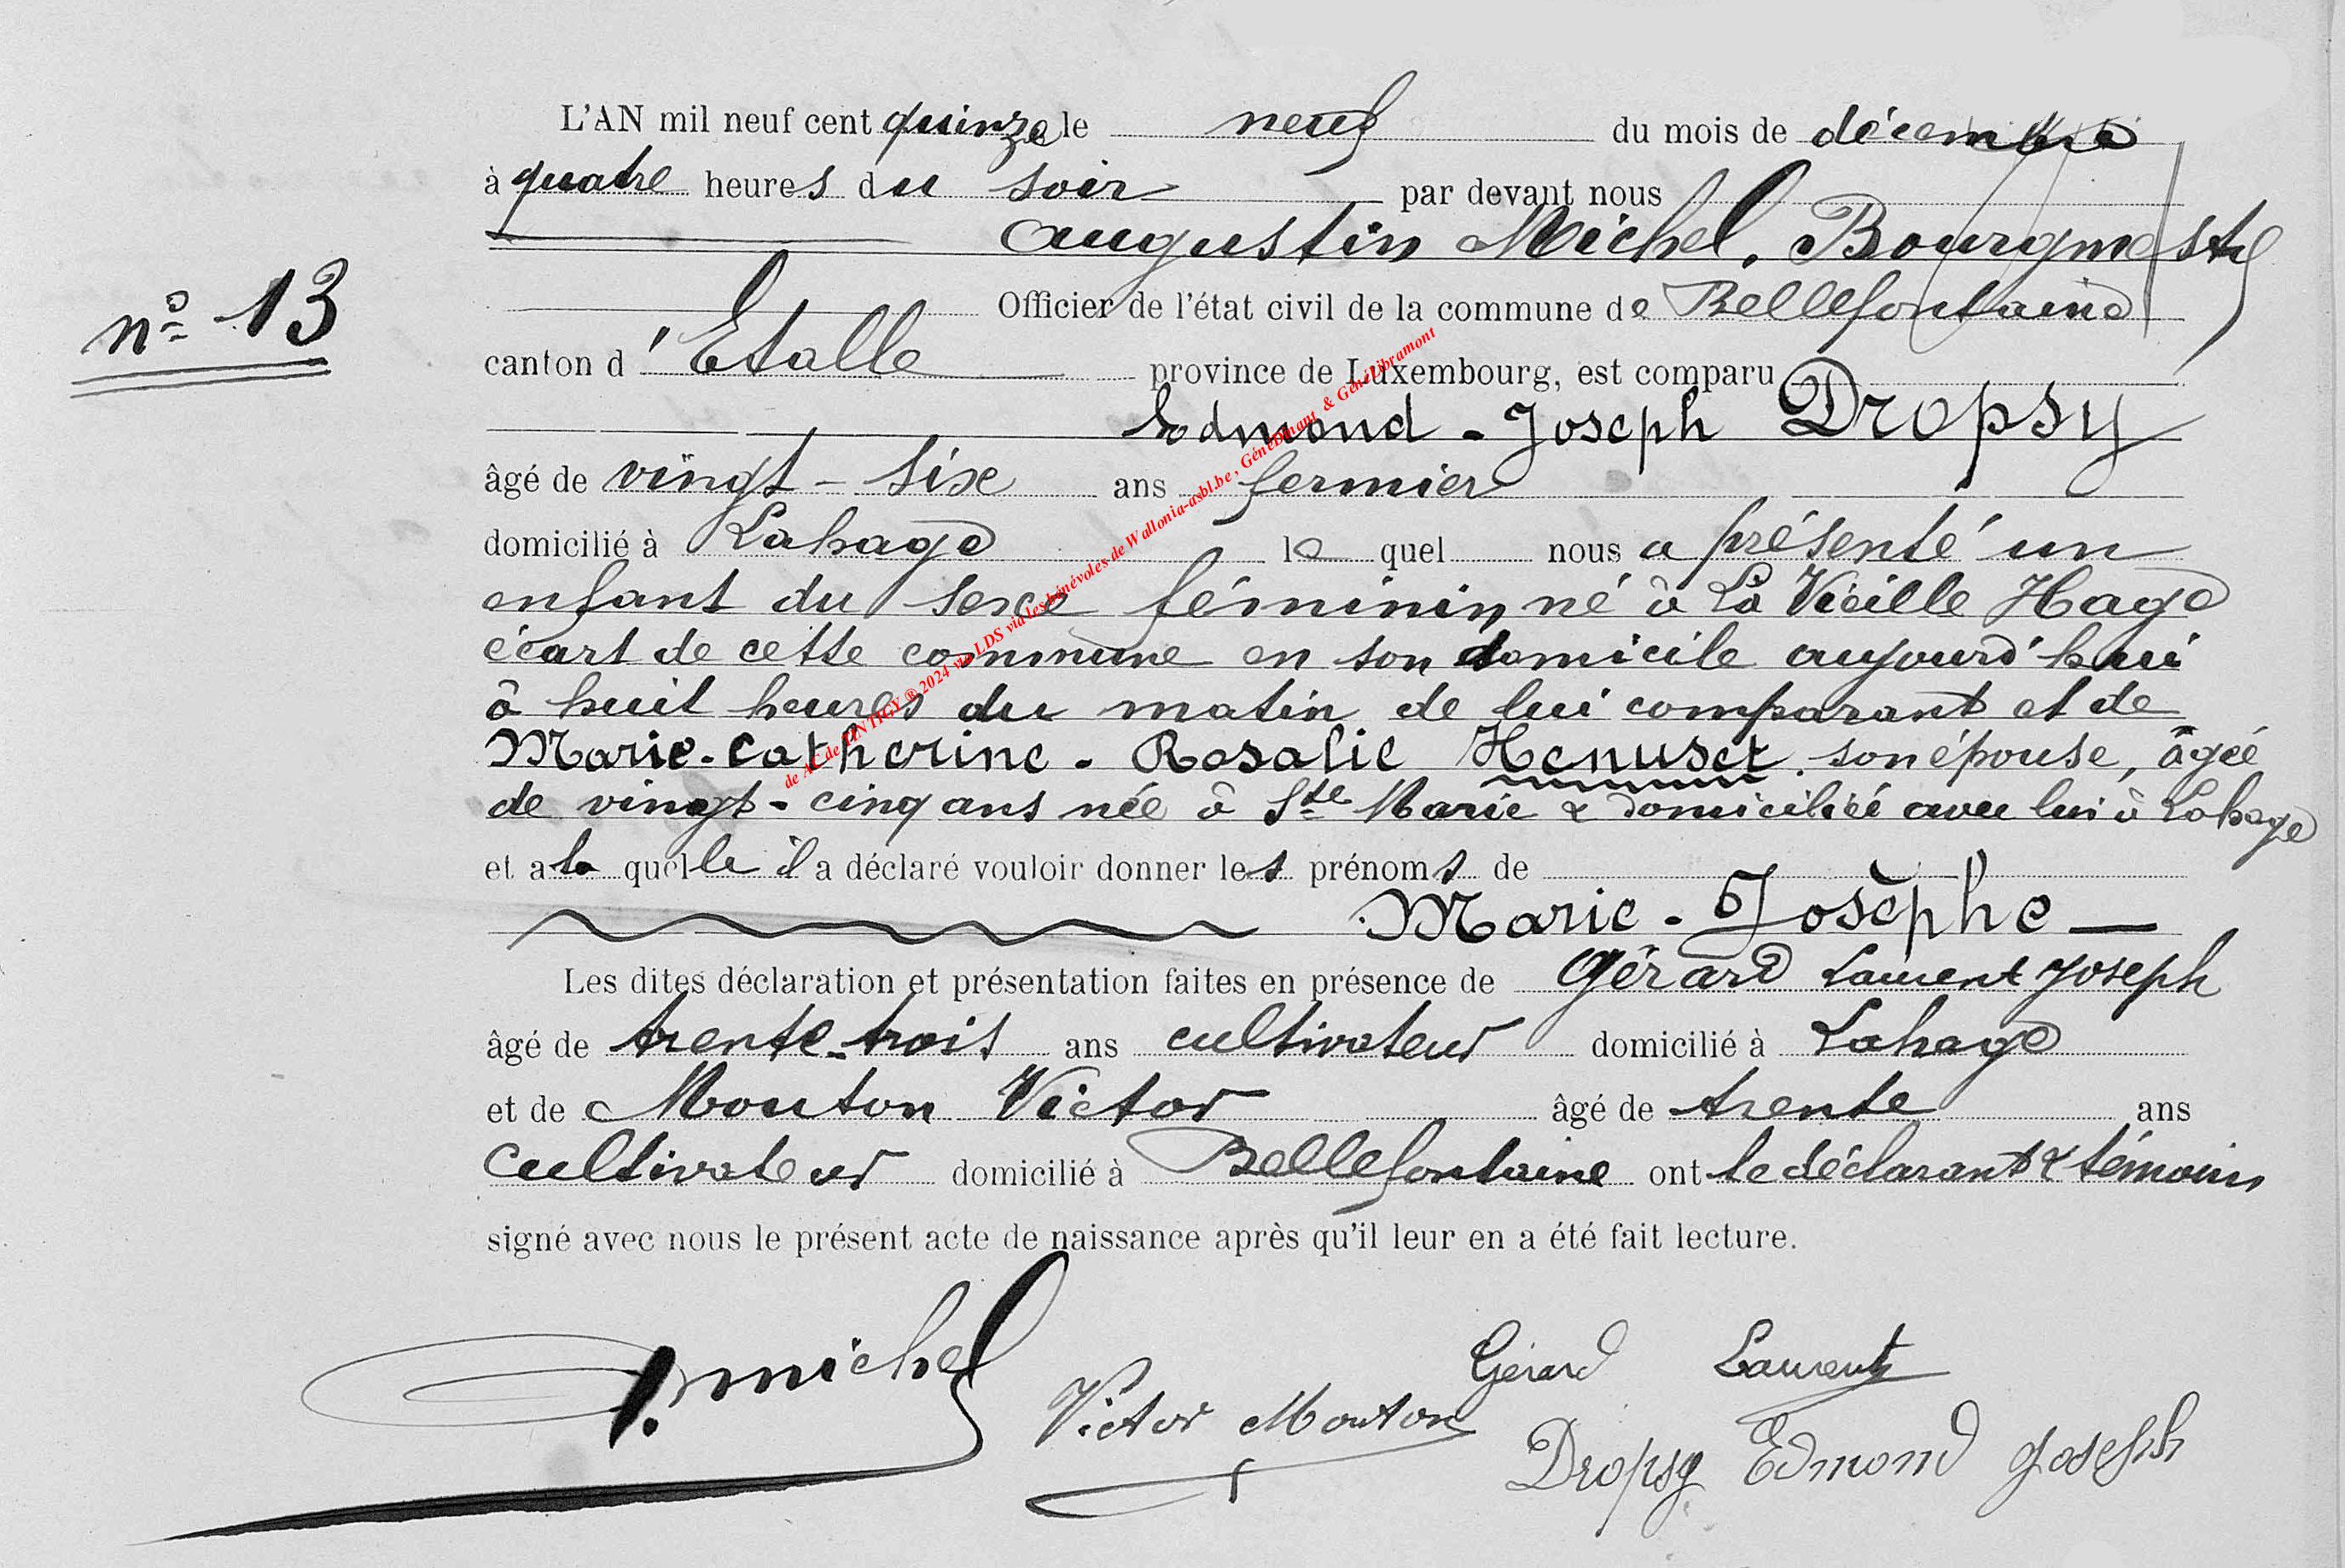 L'AN mil neuf cent quinze le neuf du mois de décembre
à quatre heures du soir par devant nous
Augustin Michel, Bourgmestre
n° 13
Officier de l'état civil de la commune de Bellefontaine
canton d'Etalle province de Luxembourg, est comparu
Edmond-Joseph Dropsy
âgé de vingt-six ans fermier
domicilié à Lahage lequel nous a présenté un
enfant du sexe féminin né à La Vieille Hage
écart de cette commune en son domicile aujourd'hui
à huit heures du matin de lui comparant et de
Marie-Catherine-Rosalie Henuset, son épouse, âgée
de vingt-cinq ans née à Ste Marie & domiciliée avec lui à Lahage
et a la quelle il a déclaré vouloir donner les prénoms de
Marie-Josèphe
Les dites déclaration et présentation faites en présence de Gérard Laurent Joseph
âgé de trente-trois ans cultivateur domicilié à Lahage
et de Mouton Victor âgé de trente ans
cultivateur domicilié à Bellefontaine ont le déclarant & témoins
signé avec nous le présent acte de naissance après qu'il leur en a été fait lecture.
A. Michel
Gérard Laurent
Victor Mouton
Dropsy Edmond Joseph
de AC de TINTIGY ® 2024 via LDS via les bénévoles de Wallonia-asbl.be, GénéDinant & GénéLibramont